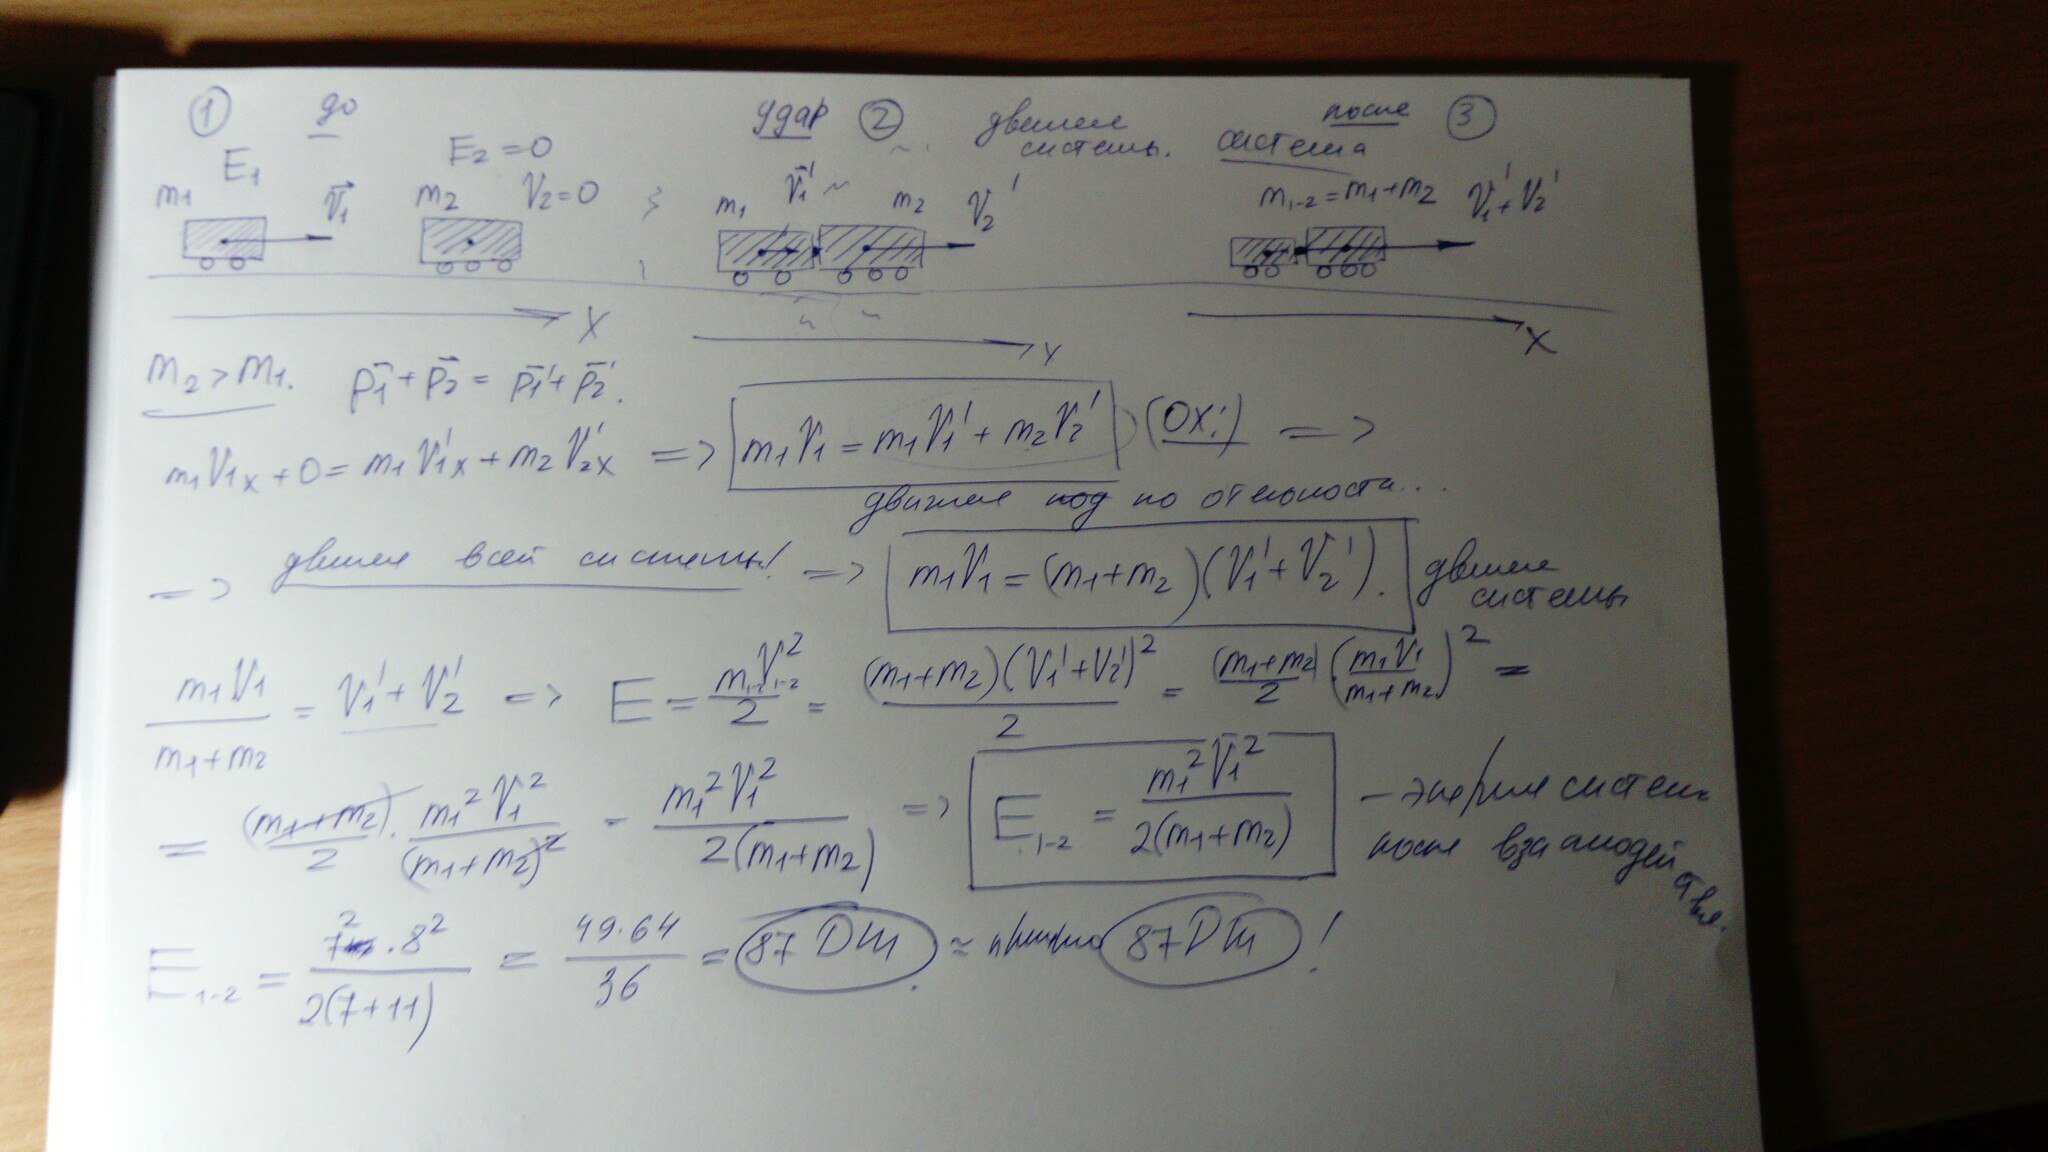 ① до
E₁ E₂ = 0
m₁ V⃗₁ m₂ V₂ = 0
удар ② движение системы.
m₁ V⃗₁' m₂ V₂'
после ③
система
m₁₋₂ = m₁ + m₂ V₁' + V₂'
X X X
m₂ > m₁. p⃗₁ + p⃗₂ = p⃗₁' + p⃗₂'.
m₁V₁ₓ + 0 = m₁V₁'ₓ + m₂V₂'ₓ => m₁V₁ = m₁V₁' + m₂V₂' (OX:) =>
движение по отельности...
=> движение всей системы! => m₁V₁ = (m₁ + m₂)(V₁' + V₂'). движение системы
m₁V₁ / (m₁ + m₂) = V₁' + V₂' => E = m₁₋₂V₁₋₂² / 2 = (m₁ + m₂)(V₁' + V₂')² / 2 = (m₁ + m₂) / 2 · (m₁V₁ / (m₁ + m₂))² =
= (m₁ + m₂) / 2 · m₁²V₁² / (m₁ + m₂)² = m₁²V₁² / 2(m₁ + m₂) => E₁₋₂ = m₁²V₁² / 2(m₁ + m₂) – энергия системы
после взаимодействия.
E₁₋₂ = 7² · 8² / 2(7 + 11) = 49 · 64 / 36 = 87 Дж. ≈ 87 Дж !